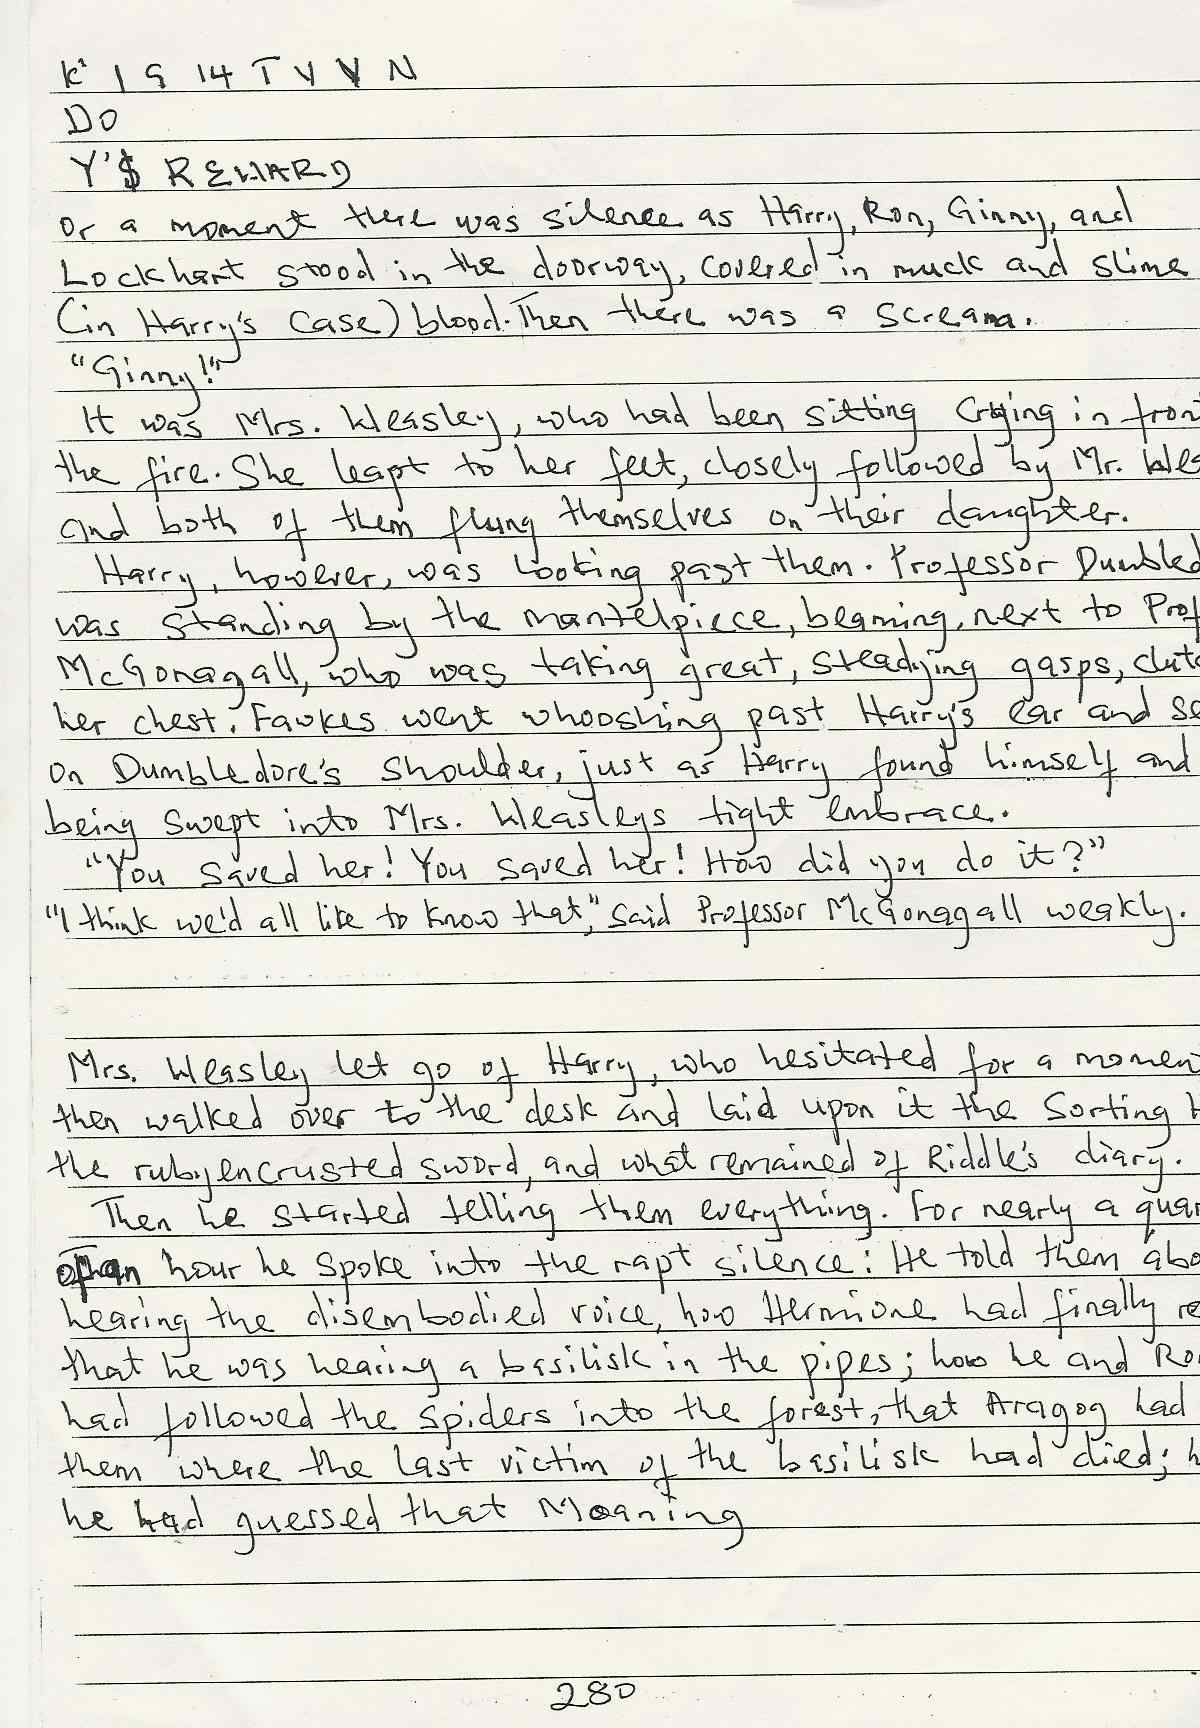 K' 1 9 14 T V V N
DO
Y'$ REWARD
or a moment there was silence as Harry, Ron, Ginny, and
Lockhart stood in the doorway, covered in muck and slime
(in Harry's case) blood. Then there was a scream.
"Ginny!"
It was Mrs. Weasley, who had been sitting crying in fron
the fire. She leapt to her feet, closely followed by Mr. Wes
and both of them flung themselves on their daughter.
Harry, however, was looking past them. Professor Dumbled
was standing by the mantelpiece, beaming, next to Prof
McGonagall, who was taking great, steadying gasps, clutc
her chest. Fawkes went whooshing past Harry's ear and se
on Dumbledore's shoulder, just as Harry found himself and
being swept into Mrs. Weasleys tight embrace.
"You saved her! You saved her! How did you do it?"
"I think we'd all like to know that," said Professor McGonagall weakly.
Mrs. Weasley let go of Harry, who hesitated for a momen
then walked over to the desk and laid upon it the Sorting H
the rubyencrusted sword, and what remained of Riddle's diary.
Then he started telling them everything. For nearly a quar
of an hour he spoke into the rapt silence: He told them abo
hearing the disembodied voice, how Hermione had finally re
that he was hearing a basilisk in the pipes; how he and Ro
had followed the spiders into the forest, that Aragog had
them where the last victim of the basilisk had died; h
he had guessed that Moaning
280